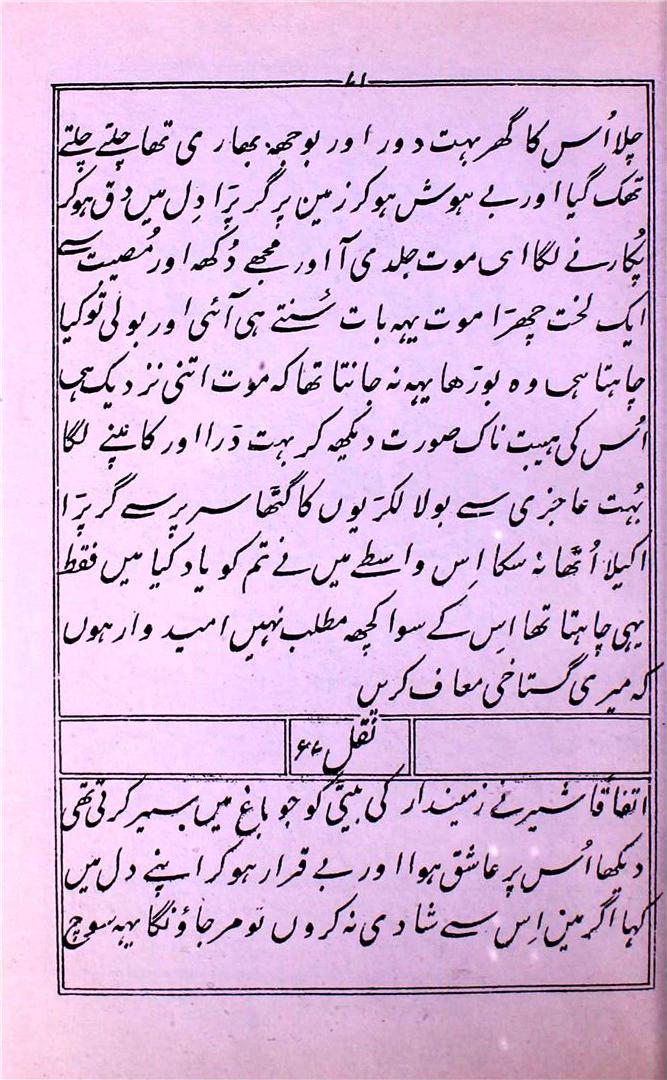 ۷۱
چلا اُس کا گھر بہت دور اور بوجھہ بھاری تھا چلتے چلتے
تھک گیا اور بے ہوش ہوکر زمین پر گر پرَا دِل میں دق ہوکر
پُکارنے لگا ای موت جلدی آ اور مجھے دُکھہ اور مُصیبت سے
ایک لخت چھرَا موت یہہ بات سُنتے ہی آئی اور بولی تو کیا
چاہتا ہی وہ بورَھا یہہ نہ جانتا تھا کہ موت اتنی نزدیک ہی
اُس کی ہیبت ناک صورت دیکھہ کر بہت دَرا اور کانپنے لگا
بُہت عاجزی سے بولا لکرَیوں کا گٹھا سر پر سے گر پرَا
اکیلا اُٹھا نہ سکا اِس واسطے میں نے تم کو یاد کیا میں فقط
یہی چاہتا تھا اِس کے سوا کچھہ مطلب نہیں امیدوار ہوں
کہ میری گستاخی معاف کریں
نقل ۶۴
اتفاقًا شیر نے زمیندار کی بیٹی کو جو باغ میں سیر کرتی تھی
دیکھا اُس پر عاشق ہوا اور بے قرار ہوکر اپنے دل میں
کہا اگر میں اِس سے شادی نہ کروں تو مر جاؤنگا یہہ سوچ